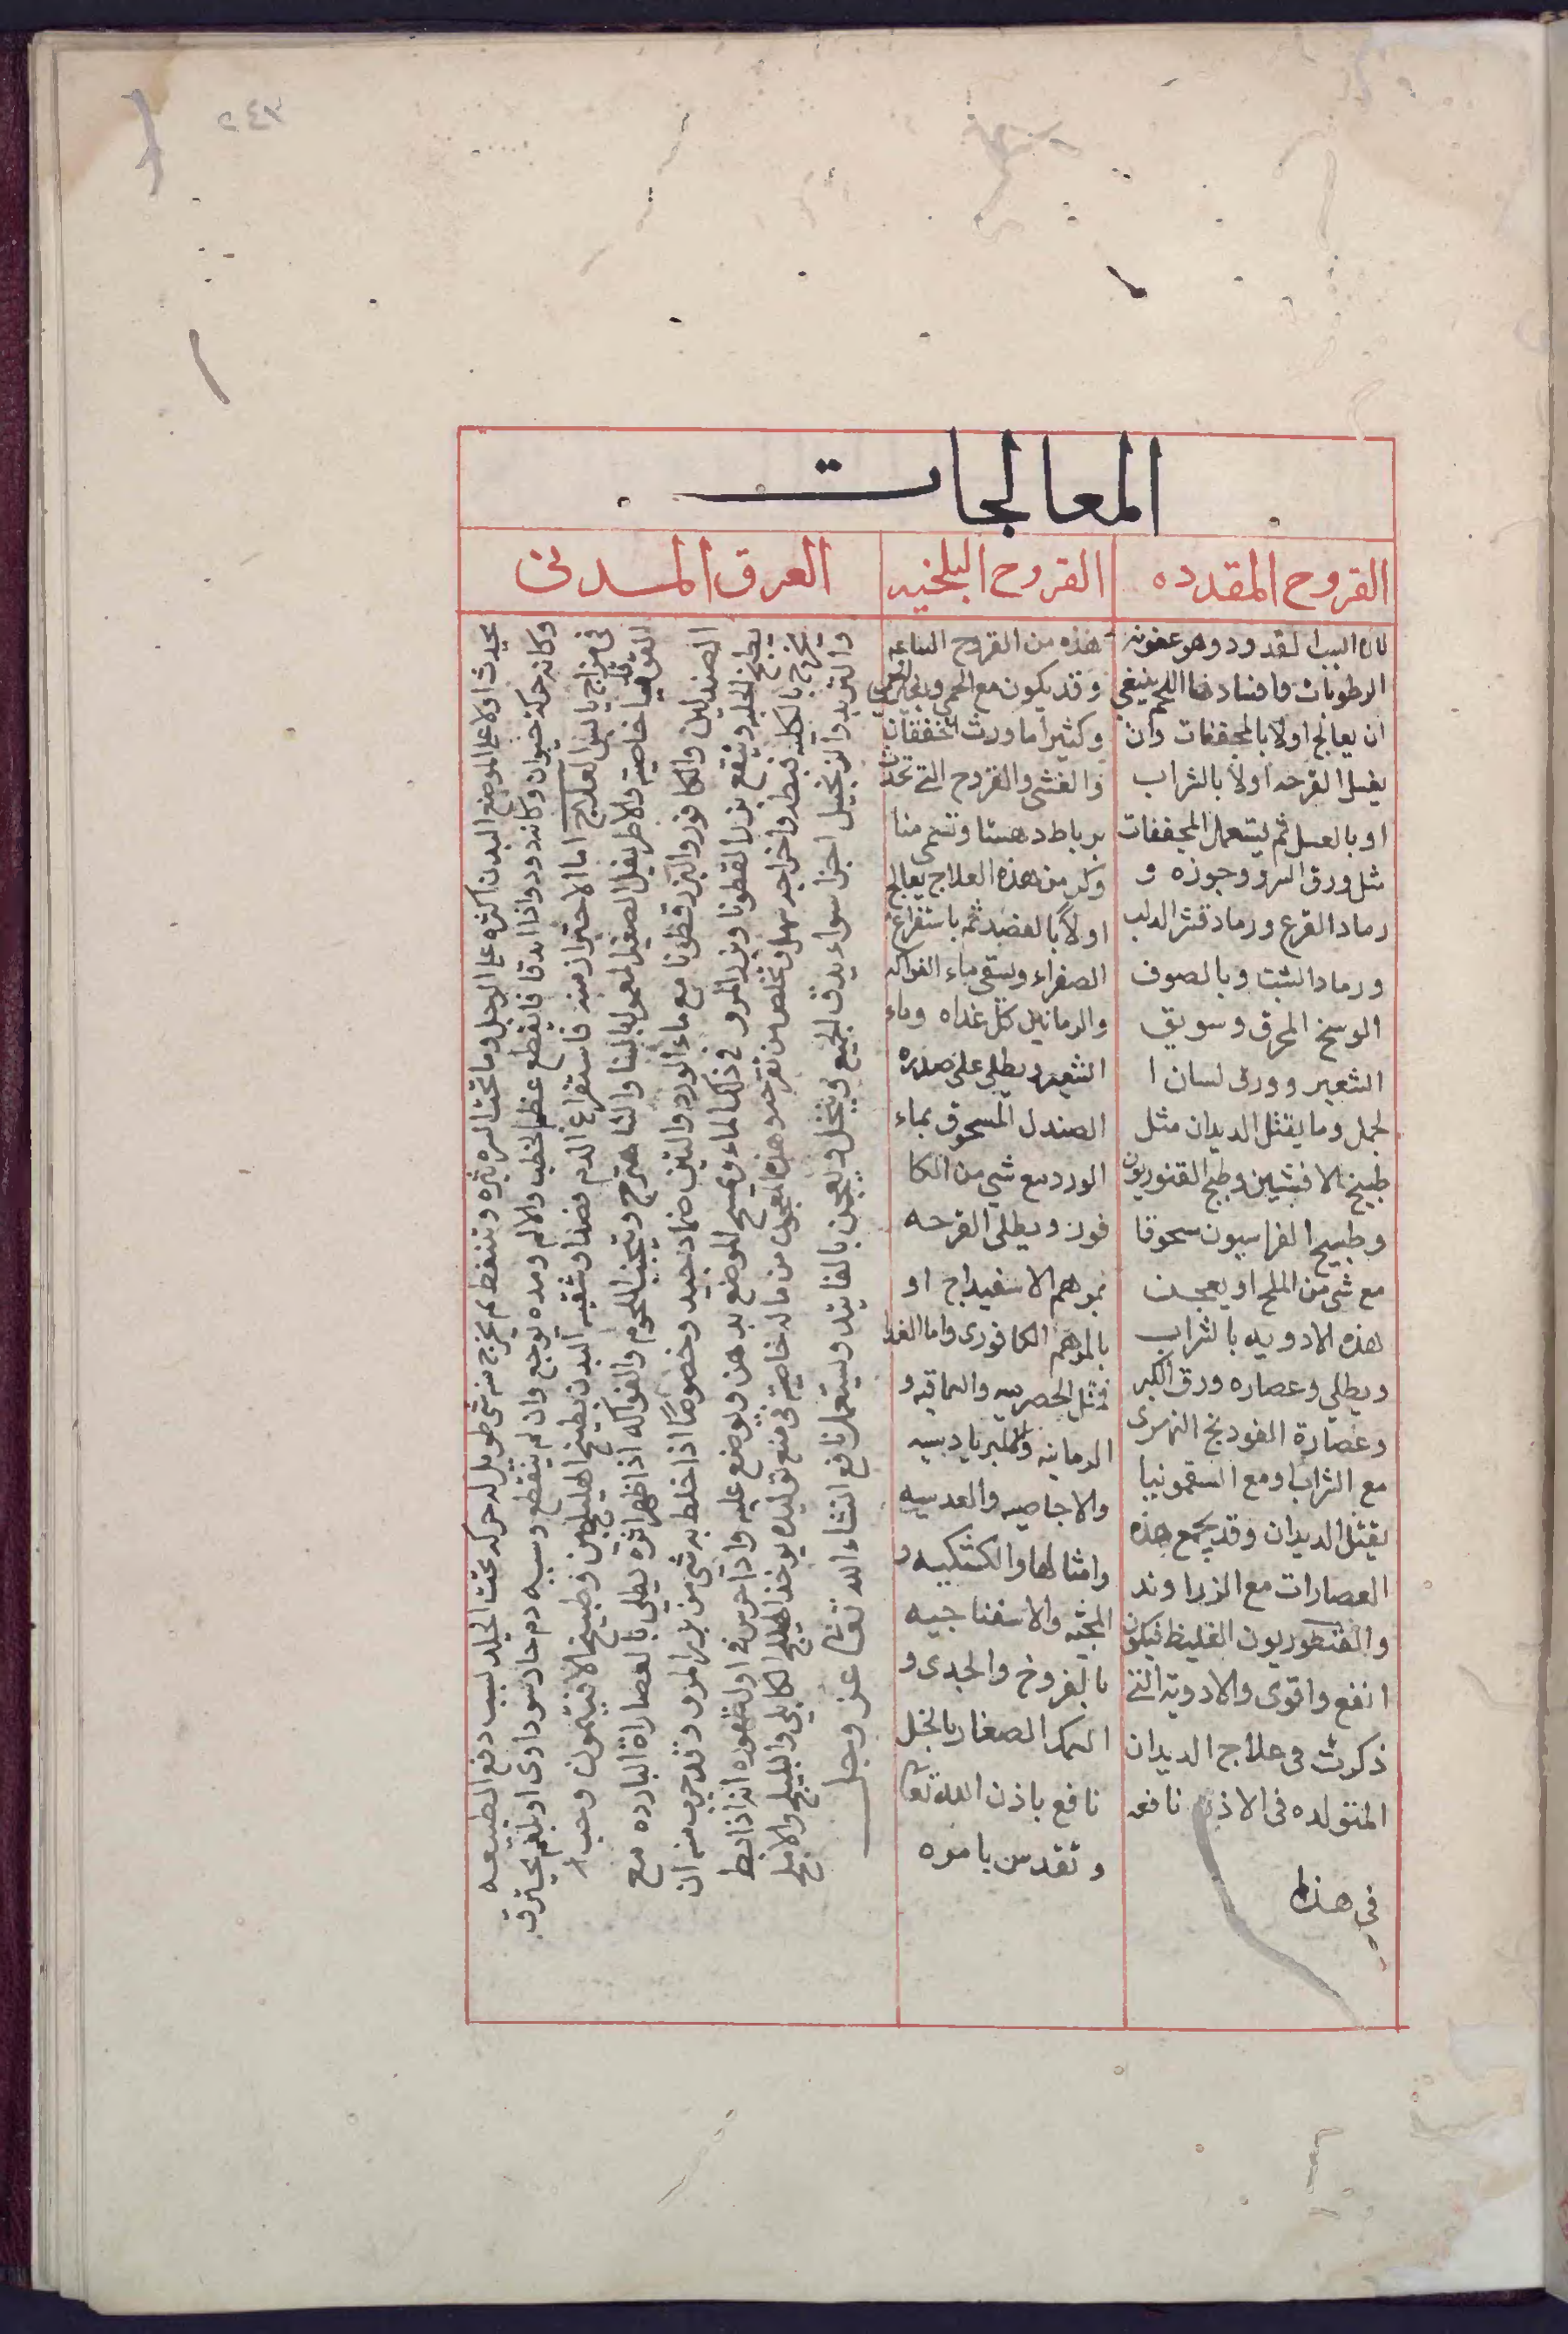 ٢٤٣
المعالجات
القروح المقدده
القروح البلخيه
العرق المدنى
لان السبب لقد ودد وهو عفونه
الرطوبات وافسادها اللحم ينبغى
ان يعالج اولا بالمجففات وان
يغسل القرحه اولا بالشراب
او بالعسل ثم يستعمل المجففات
مثل ورق السرو وجوزه و
رماد القرع ورماد قشر الدلب
ورماد الشبت وبالصوف
الوسخ المحرق وسويق
الشعير وورق لسان ا
لحمل وما يقتل الديدان مثل
طبيخ الافسنتين وطبيخ القنوريون
وطبيخ الفراسيون سحوقا
مع شى من الملح او يعجن
هذه الادويه بالشراب
ويطلى وعصاره ورق الكبر
وعصارة الفودنج النهرى
مع الشراب او مع السقمونيا
يقتل الديدان وقد يجمع هذه
العصارات مع الزراوند
والقنطوريون الغليظ فيكون
انفع واقوى والادوية التى
ذكرت فى علاج الديدان
المتولده فى الاذن نافعه
فى هذا
هذه من القروح الساعيه
وقد يكون مع الحمى وبغير الحمى
وكثيرا ما ورث الخفقان
والغشى والقروح التى تحدث
برباط دهستا وتسمى منا
وكل من هذه العلاج يعالج
اولاً بالفصد ثم باستفراغ
الصفراء ويسقى ماء الفواكه
والرمانين كل غداه وماء
الشعير ويطلى على صدره
الصندل المسحوق بماء
الورد مع شى من الكا
فور ويطلى القرحه
بمرهم الاسفيداج او
بالمرهم الكافورى واما الغذا
فمثل الحصرميه والسماقيه و
الرمانيه والامبرباديسيه
والاجاصيه والعدسيه
وامثالها والكشكيه و
المجيه والاسفناجيه
بالفروخ والجدى و
السمك الصغار بالخل
نافع باذن الله تعالى
وتقدس بامره
يحدث اولا على الموضع البدن اكثره على الرجل وما تحت السره بثره وتتنفط ثم يخرج منه شى طويل له حركه تحت الجلد لسبب دفع الطبيعه
وكانه حركة حيوان وكانه دود واذا اندقا فانقطع عظم الخطب والالم ومده يوجع وان لم ينقطع وسببه دم حار سوداوى او بلغم يحترق
فى مزاج يابس العلاج اما الاحتراز منه فاستفراغ الدم فصدا وشقيه البدن بطبيخ اهليلجين وطبيخ الافتيمون وحب ا
لقوقيا خاصية والاطريفل الصغير المعمول بالسنا والشاهترج وتجنب اللحوم والفواكه اذا ظهر اثره يطلى بالعصاراة البارده مع
الصندلين والكافور والبزرقطونا مع ماء الورد والتين ضماد جيد وخصوصًا اذا خلط به شى من بزر المرو وقد جرب منه ان
يطبخ الحلبه وينقع بزر القطونا وبزر المرو فى ذلك الماء ويمسح الموضع بدهن ويوضع عليه واذا حرس فى اول ظهوره انه اذا بط
يخرج بالكليه فبطه واخراجه سهل ويخلص من تقرحه وهذه المعجون من ماله خاصية فى منع توليده يوخذ اهليلج الكابلى والبليلج والاملج
والتربد والزنجبيل اجزا سواء يدق الجميع وينخل ويعجن بالفانيد ويستعمل نافع انشاء الله تعالى عز وجل